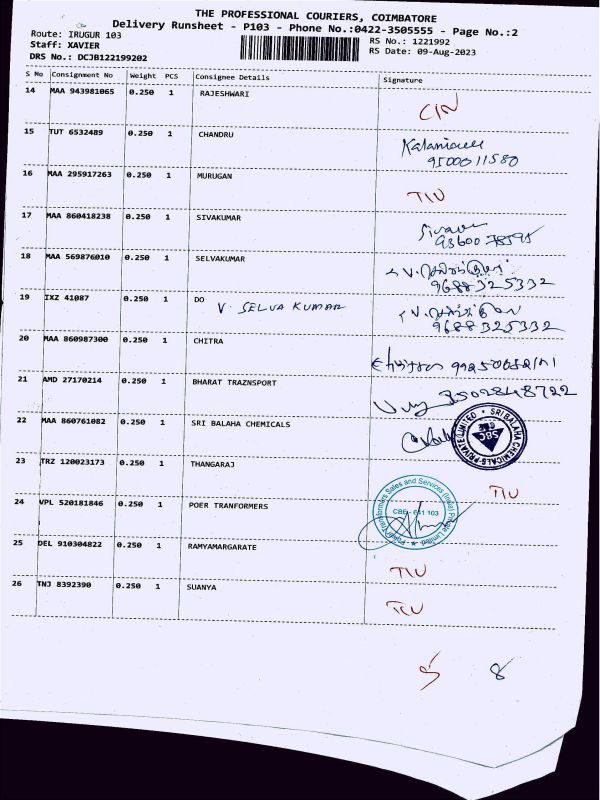 THE PROFESSIONAL COURIERS, COIMBATORE
Delivery Runsheet - P103 - Phone No.:0422-3505555 - Page No.:2
Route: IRUGUR 103 RS No.: 1221992
Staff: XAVIER RS Date: 09-Aug-2023
DRS No.: DCJB122199202
S No Consignment No Weight PCS Consignee Details Signature
14 MAA 943981065 0.250 1 RAJESHWARI
15 TUT 6532489 0.250 1 CHANDRU
9500011580
16 MAA 295917263 0.250 1 MURUGAN
17 MAA 860418238 0.250 1 SIVAKUMAR
18 MAA 569876010 0.250 1 SELVAKUMAR
9688325332
19 IXZ 41087 0.250 1 DO V. SELVA KUMAR
9688325332
20 MAA 860987300 0.250 1 CHITRA
21 AMD 27170214 0.250 1 BHARAT TRAZNSPORT
22 MAA 860761082 0.250 1 SRI BALAHA CHEMICALS SRI BALAHA CHEMICALS PRIVATE LIMITED SBC CBE
23 TRZ 120023173 0.250 1 THANGARAJ
24 VPL 520181846 0.250 1 POER TRANFORMERS Transformers Sales and Services (India) Private Limited
25 DEL 910304822 0.250 1 RAMYAMARGARATE
26 TNJ 8392390 0.250 1 SUANYA
8